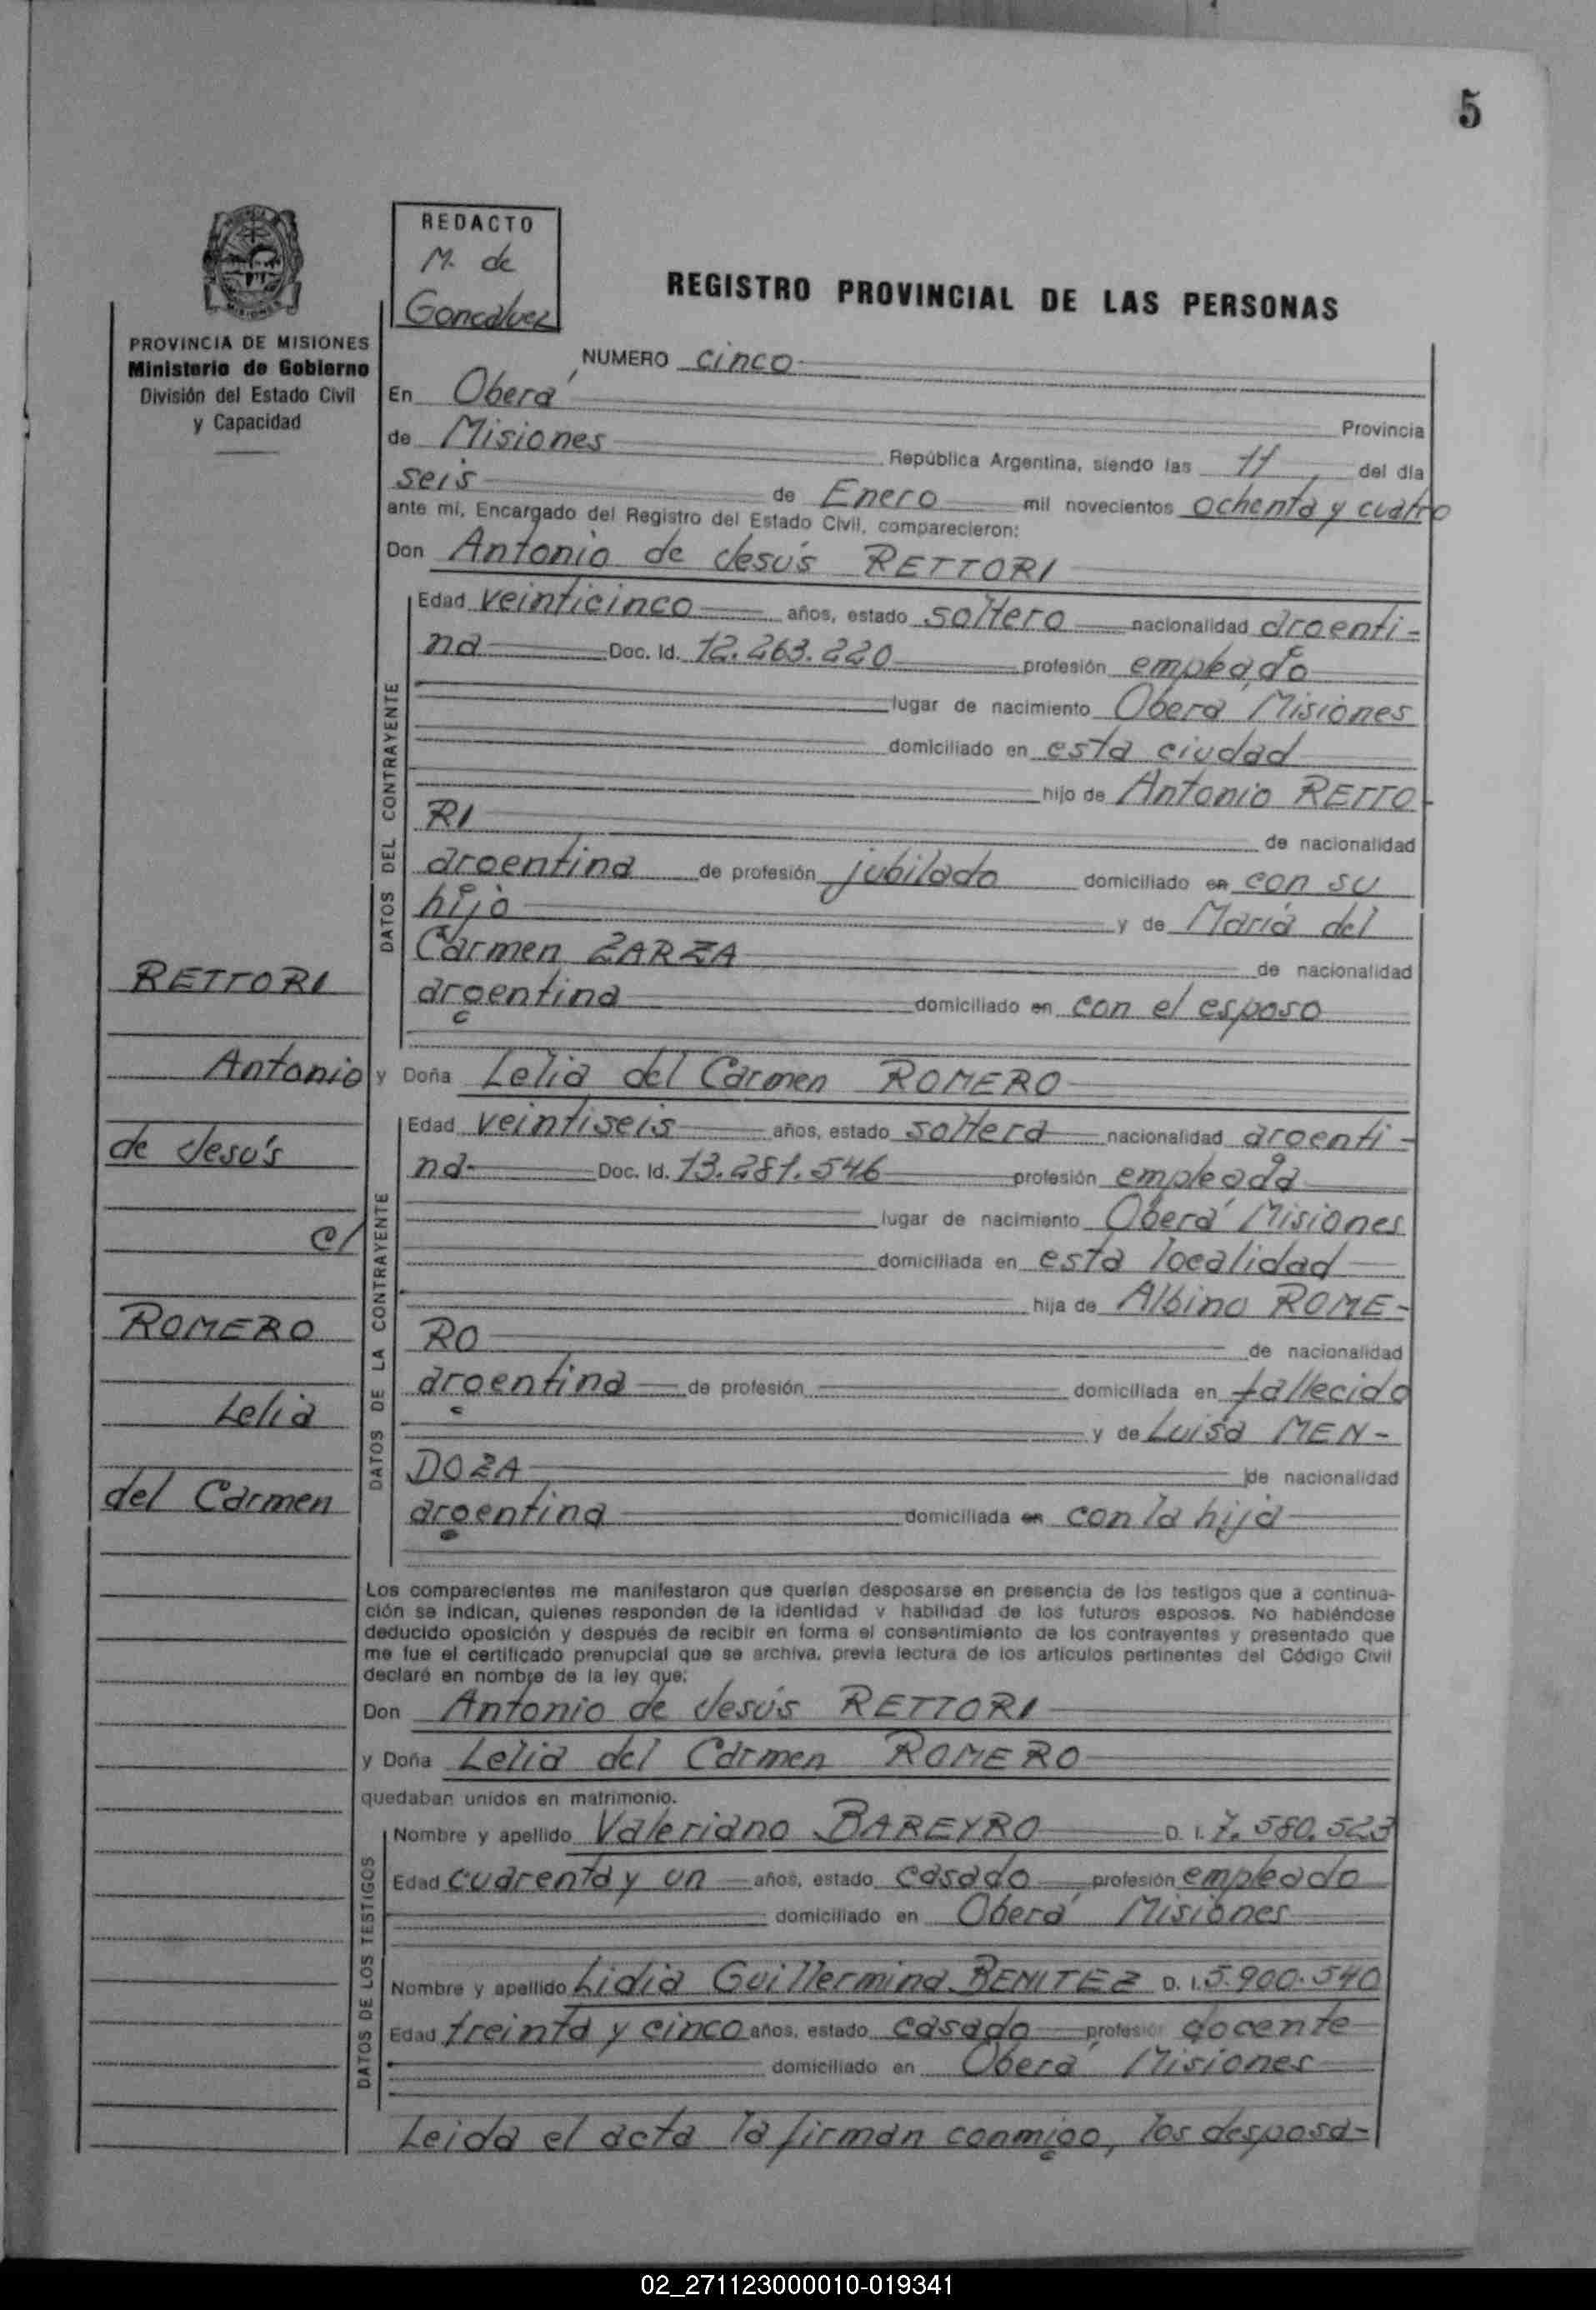 5
REDACTO
M. de
Goncalvez
REGISTRO PROVINCIAL DE LAS PERSONAS
PROVINCIA DE MISIONES
Ministerio de Gobierno
División del Estado Civil
y Capacidad
NUMERO cinco
En Oberá
Provincia
de Misiones República Argentina, siendo las 11 del día
seis de Enero mil novecientos ochenta y cuatro
ante mí, Encargado del Registro del Estado Civil, comparecieron:
Don Antonio de Jesús RETTORI
DATOS DEL CONTRAYENTE
Edad veinticinco años, estado soltero nacionalidad argenti-
na Doc. Id. 12.263.220 profesión empleado
lugar de nacimiento Oberá Misiones
domiciliado en esta ciudad
hijo de Antonio RETTO-
RI de nacionalidad
argentina de profesión jubilado domiciliado en con su
hijo y de María del
Carmen ZARZA de nacionalidad
argentina domiciliado en con el esposo
y Doña Lelia del Carmen ROMERO
DATOS DE LA CONTRAYENTE
Edad veintiseis años, estado soltera nacionalidad argenti-
na Doc. Id. 13.281.546 profesión empleada
lugar de nacimiento Oberá Misiones
domiciliada en esta localidad
hija de Albino ROME-
RO de nacionalidad
argentina de profesión domiciliada en fallecido
y de Luisa MEN-
DOZA de nacionalidad
argentina domiciliada en con la hija
RETTORI
Antonio
de Jesús
c/
ROMERO
Lelia
del Carmen
Los comparecientes me manifestaron que querían desposarse en presencia de los testigos que a continua-
ción se indican, quienes responden de la identidad y habilidad de los futuros esposos. No habiéndose
deducido oposición y después de recibir en forma el consentimiento de los contrayentes y presentado que
me fue el certificado prenupcial que se archiva, previa lectura de los artículos pertinentes del Código Civil
declaré en nombre de la ley que:
Don Antonio de Jesús RETTORI
y Doña Lelia del Carmen ROMERO
quedaban unidos en matrimonio.
DATOS DE LOS TESTIGOS
Nombre y apellido Valeriano BAREYRO D. I. 7.580.523
Edad cuarenta y un años, estado casado profesión empleado
domiciliado en Oberá Misiones
Nombre y apellido Lidia Guillermina BENITEZ D. I. 5.900.540
Edad treinta y cinco años, estado casado profesión docente
domiciliado en Oberá Misiones
Leida el acta la firman conmigo, los desposa-
02_271123000010-019341